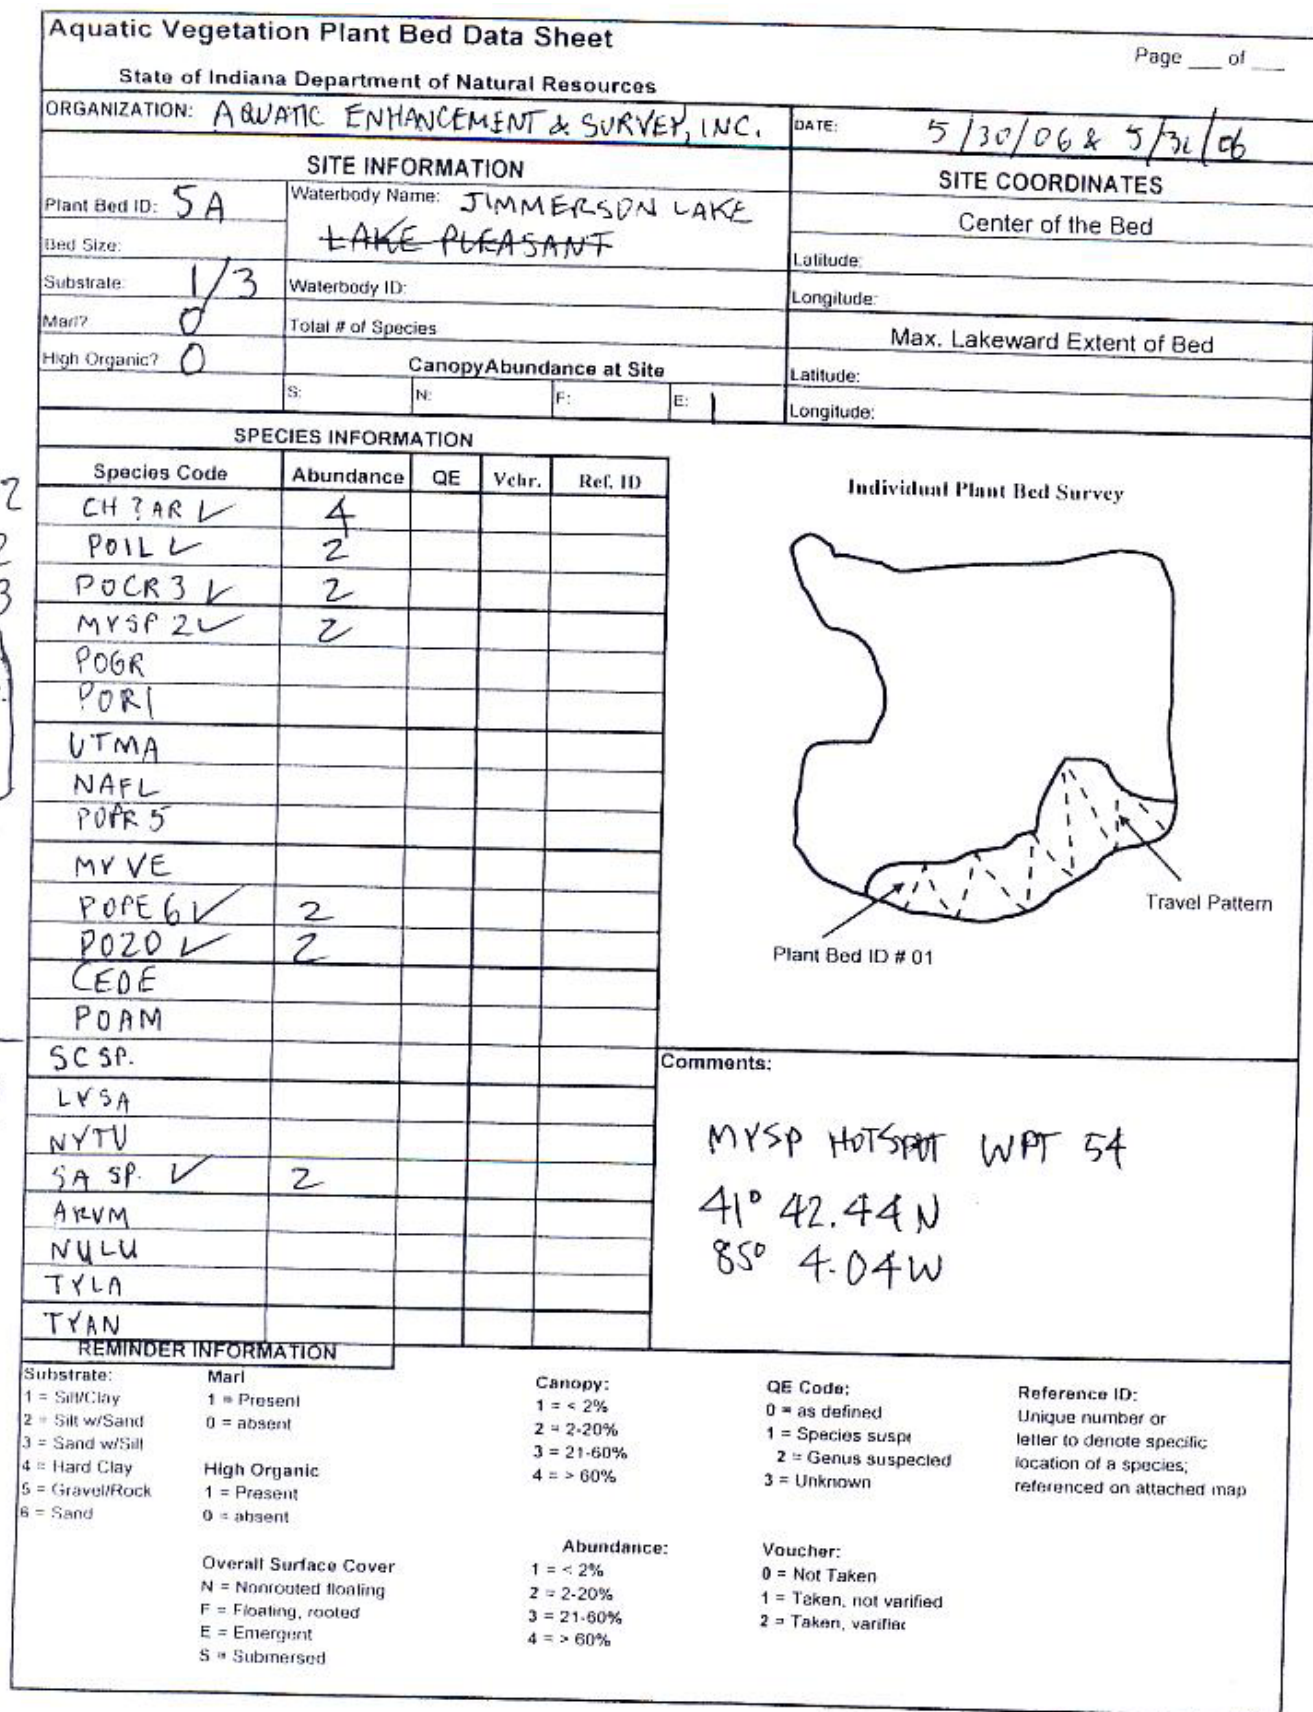 Aquatic Vegetation Plant Bed Data Sheet
Page ___ of ___
State of Indiana Department of Natural Resources
ORGANIZATION: AQUATIC ENHANCEMENT & SURVEY, INC.
DATE: 5/30/06 & 5/31/06
SITE INFORMATION
SITE COORDINATES
Plant Bed ID: 5A
Waterbody Name: JIMMERSON LAKE
LAKE PLEASANT
Center of the Bed
Bed Size:
Latitude:
Substrate: 1/3
Waterbody ID:
Longitude:
Marl? 0
Total # of Species
Max. Lakeward Extent of Bed
High Organic? 0
CanopyAbundance at Site
Latitude:
S: N: F: E: 1
Longitude:
SPECIES INFORMATION
Species Code Abundance QE Vchr. Ref. ID
CH?AR ✓ 4
POIL ✓ 2
POCR3 ✓ 2
MYSP2 ✓ 2
POGR
PORI
UTMA
NAFL
POPR5
MYVE
POPE6 ✓ 2
POZO ✓ 2
CEDE
POAM
SC SP.
LYSA
NYTU
SA SP. ✓ 2
ARVM
NULU
TYLA
TYAN
2
2
3
Individual Plant Bed Survey
Travel Pattern
Plant Bed ID # 01
Comments:
MYSP HOTSPOT WPT 54
41° 42.44 N
85° 4.04 W
REMINDER INFORMATION
Substrate:
1 = Silt/Clay
2 = Silt w/Sand
3 = Sand w/Silt
4 = Hard Clay
5 = Gravel/Rock
6 = Sand
Marl
1 = Present
0 = absent
High Organic
1 = Present
0 = absent
Overall Surface Cover
N = Nonrooted floating
F = Floating, rooted
E = Emergent
S = Submersed
Canopy:
1 = < 2%
2 = 2-20%
3 = 21-60%
4 = > 60%
Abundance:
1 = < 2%
2 = 2-20%
3 = 21-60%
4 = > 60%
QE Code:
0 = as defined
1 = Species suspe
2 = Genus suspected
3 = Unknown
Voucher:
0 = Not Taken
1 = Taken, not varified
2 = Taken, varified
Reference ID:
Unique number or
letter to denote specific
location of a species;
referenced on attached map